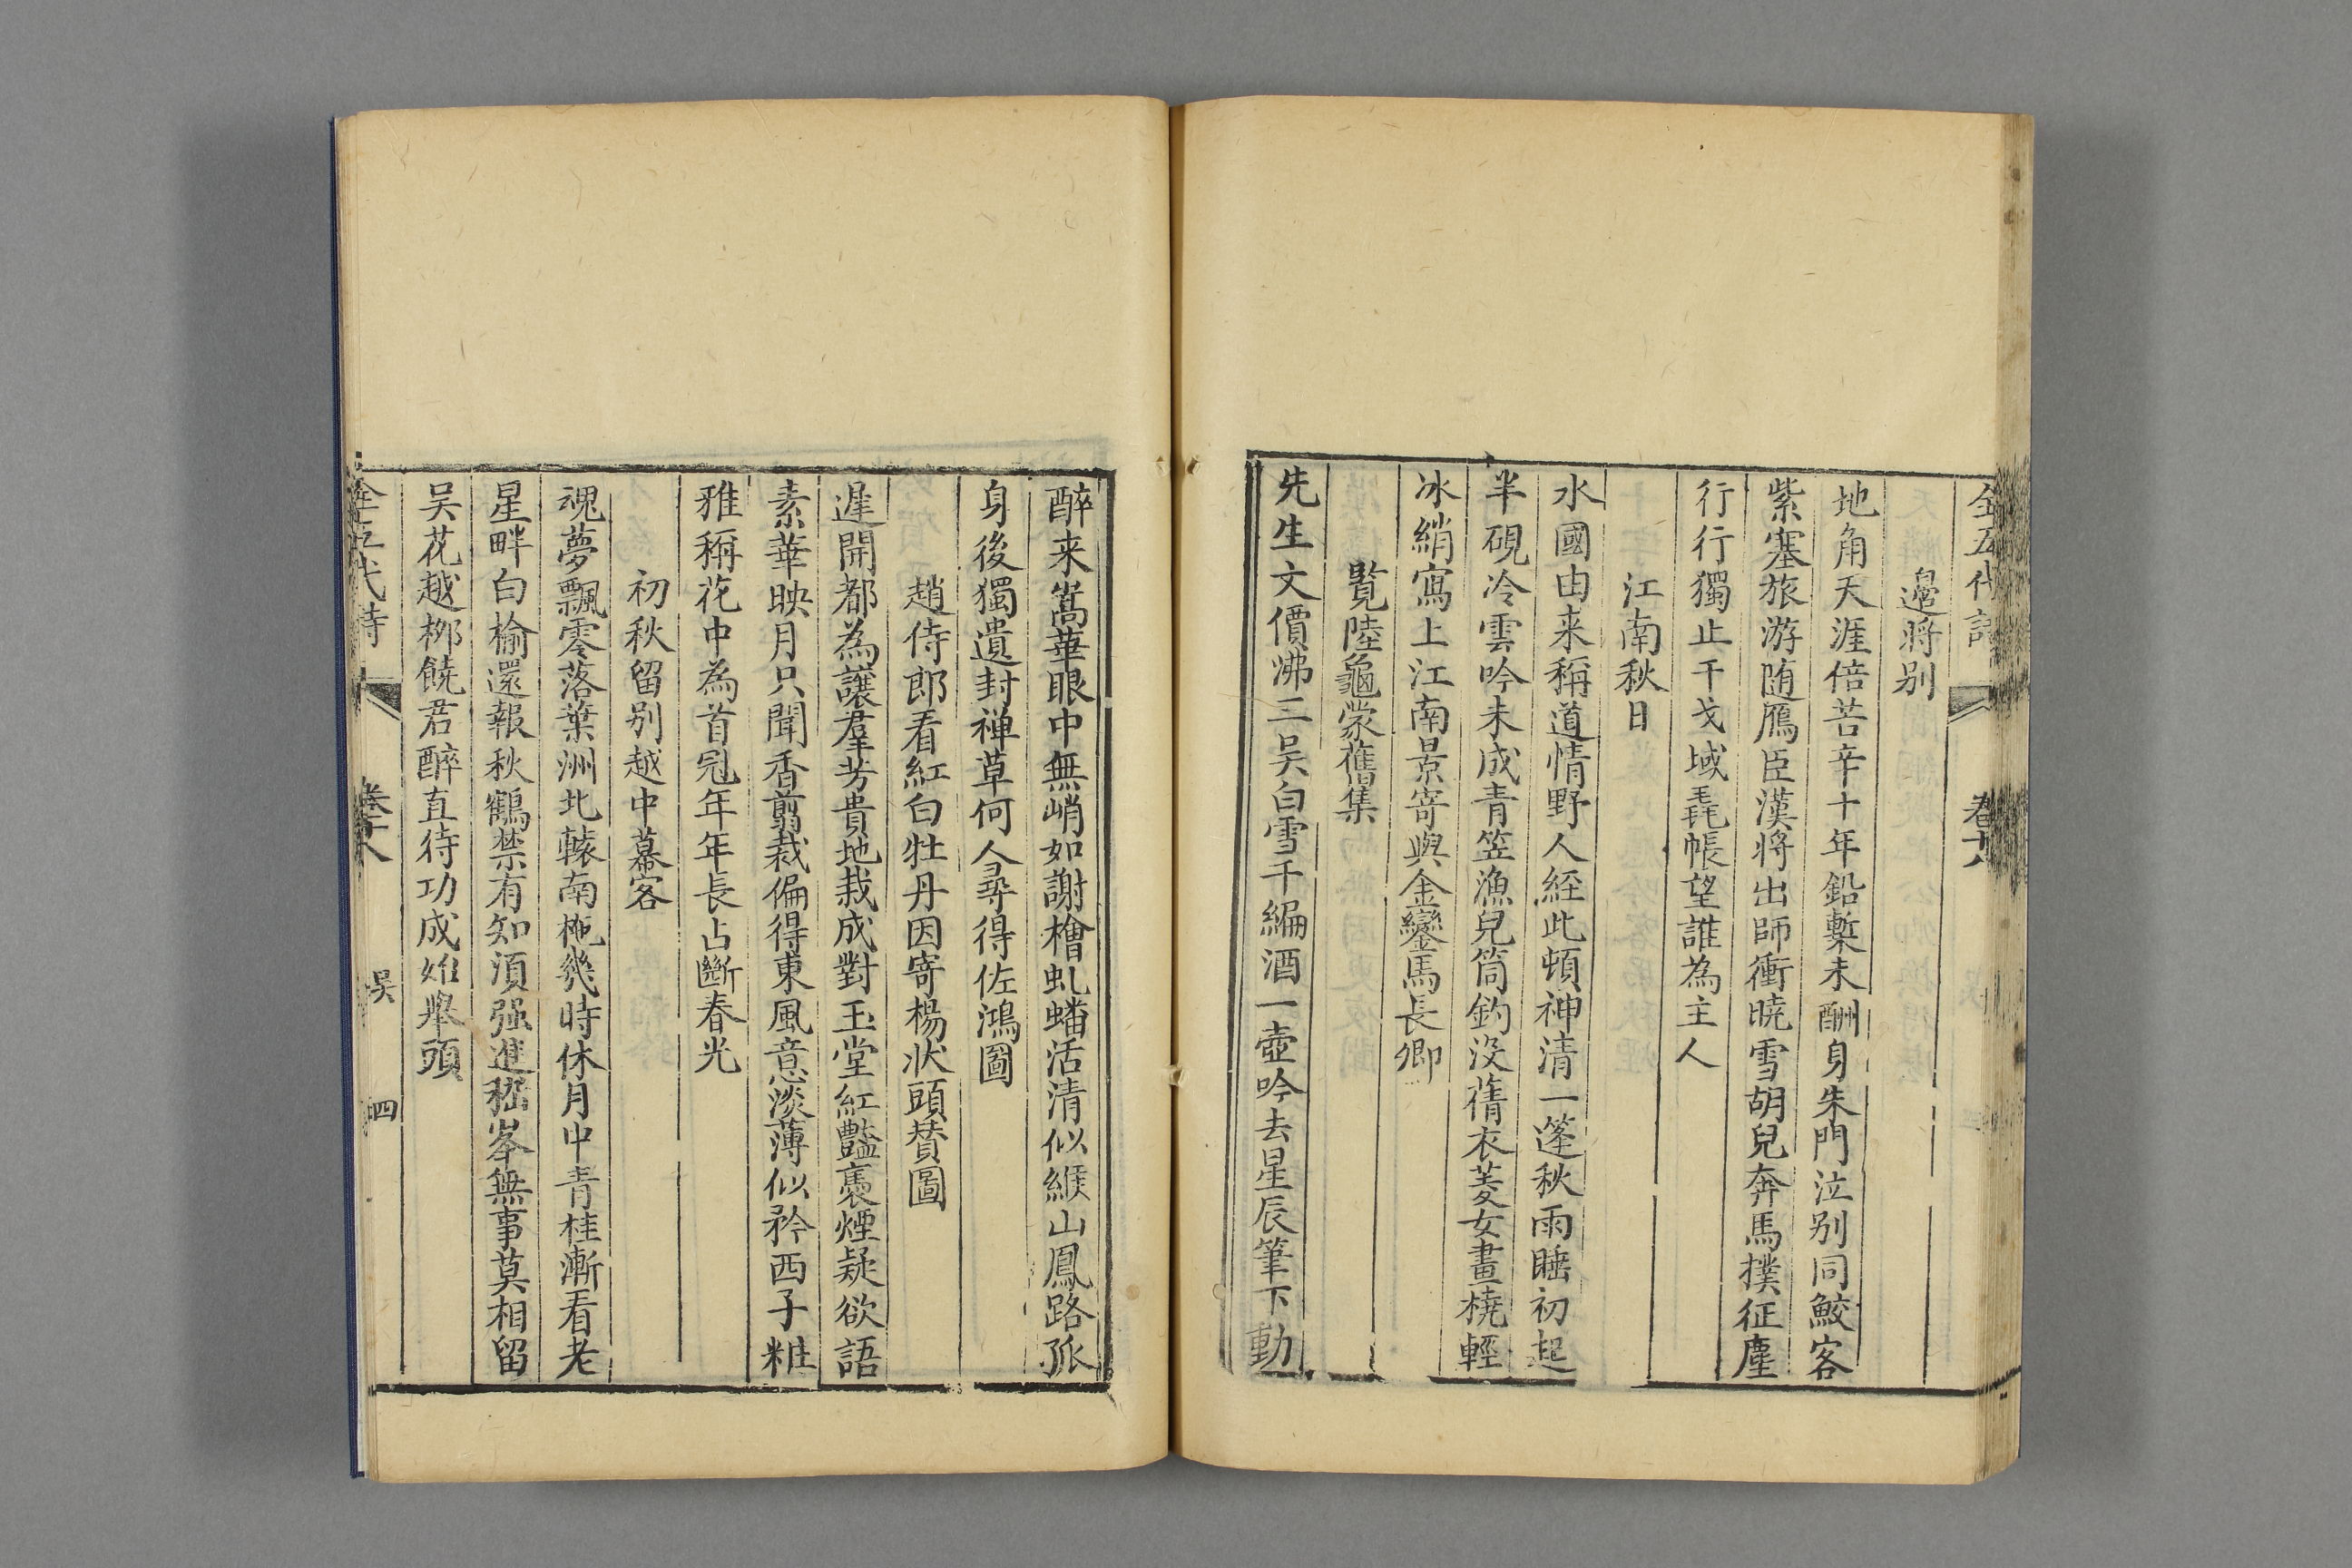 全五代詩 卷十八
邉將别
地角天涯倍苦辛十年鉛槧未酬身朱門泣别同鮫客
紫塞旅游随鴈臣漢將出師衝曉雪胡兒奔馬撲征塵
行行獨止干戈域毳帳望誰為主人
江南秋日
水國由来稱道情野人經此頓神清一蓬秋雨睡初起
半硯冷雲吟未成青笠漁兒筒釣没蒨衣菱女畫橈輕
冰綃寫上江南景寄與金鑾馬長卿
覧陸龜蒙舊集
先生文價沸三吴白雪千編酒一壺吟去星辰筆下動
醉来嵩華眼中無峭如謝檜虬蟠活清似緱山鳳路孤
身後獨遺封禅草何人尋得佐鴻圖
趙侍郎看紅白牡丹因寄楊状頭賛圖
遲開都為讓羣芳貴地栽成對玉堂紅豔裛煙疑欲語
素華映月只聞香翦裁偏得東風意淡薄似矜西子粧
雅稱花中為首冠年年長占斷春光
初秋留别越中幕客
魂夢飄零落葉洲北轅南柂幾時休月中青桂漸看老
星畔白榆還報秋鶴禁有知須强進稽峯無事莫相留
吴花越桞饒君醉直待功成始舉頭
全五代詩 卷十八 吴 四